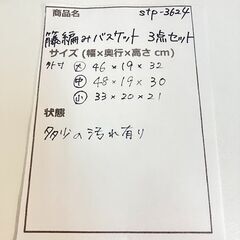 商品名 stp-3624
籐編みバスケット 3点セット
サイズ(幅×奥行×高さ cm)
外寸 大 46×19×32
中 48×19×30
小 33×20×21
状態
多少の汚れ有り